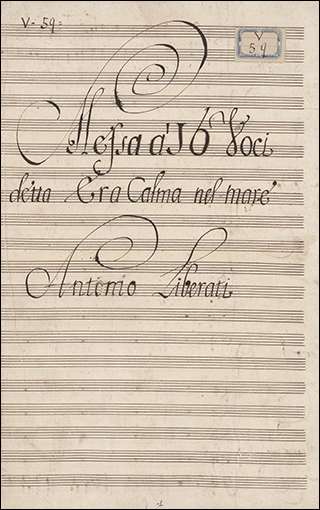 V - 59 =
V
59
Messa a 16 Voci
detta Era Calma nel mare
Antonio Liberati
1